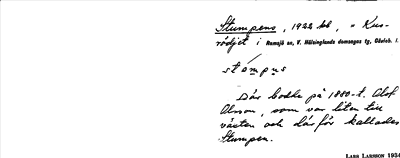 Stumpens, 1922 bb, = Kus-
rödjet i Ramsjö sn, V. Hälsinglands domsagas tg, Gävleb. l.
stompus
Där bodde på 1880-t. Olof
Olsson, som var liten till
växten och därför kallades
Stumpen.
LARS LARSSON 1934